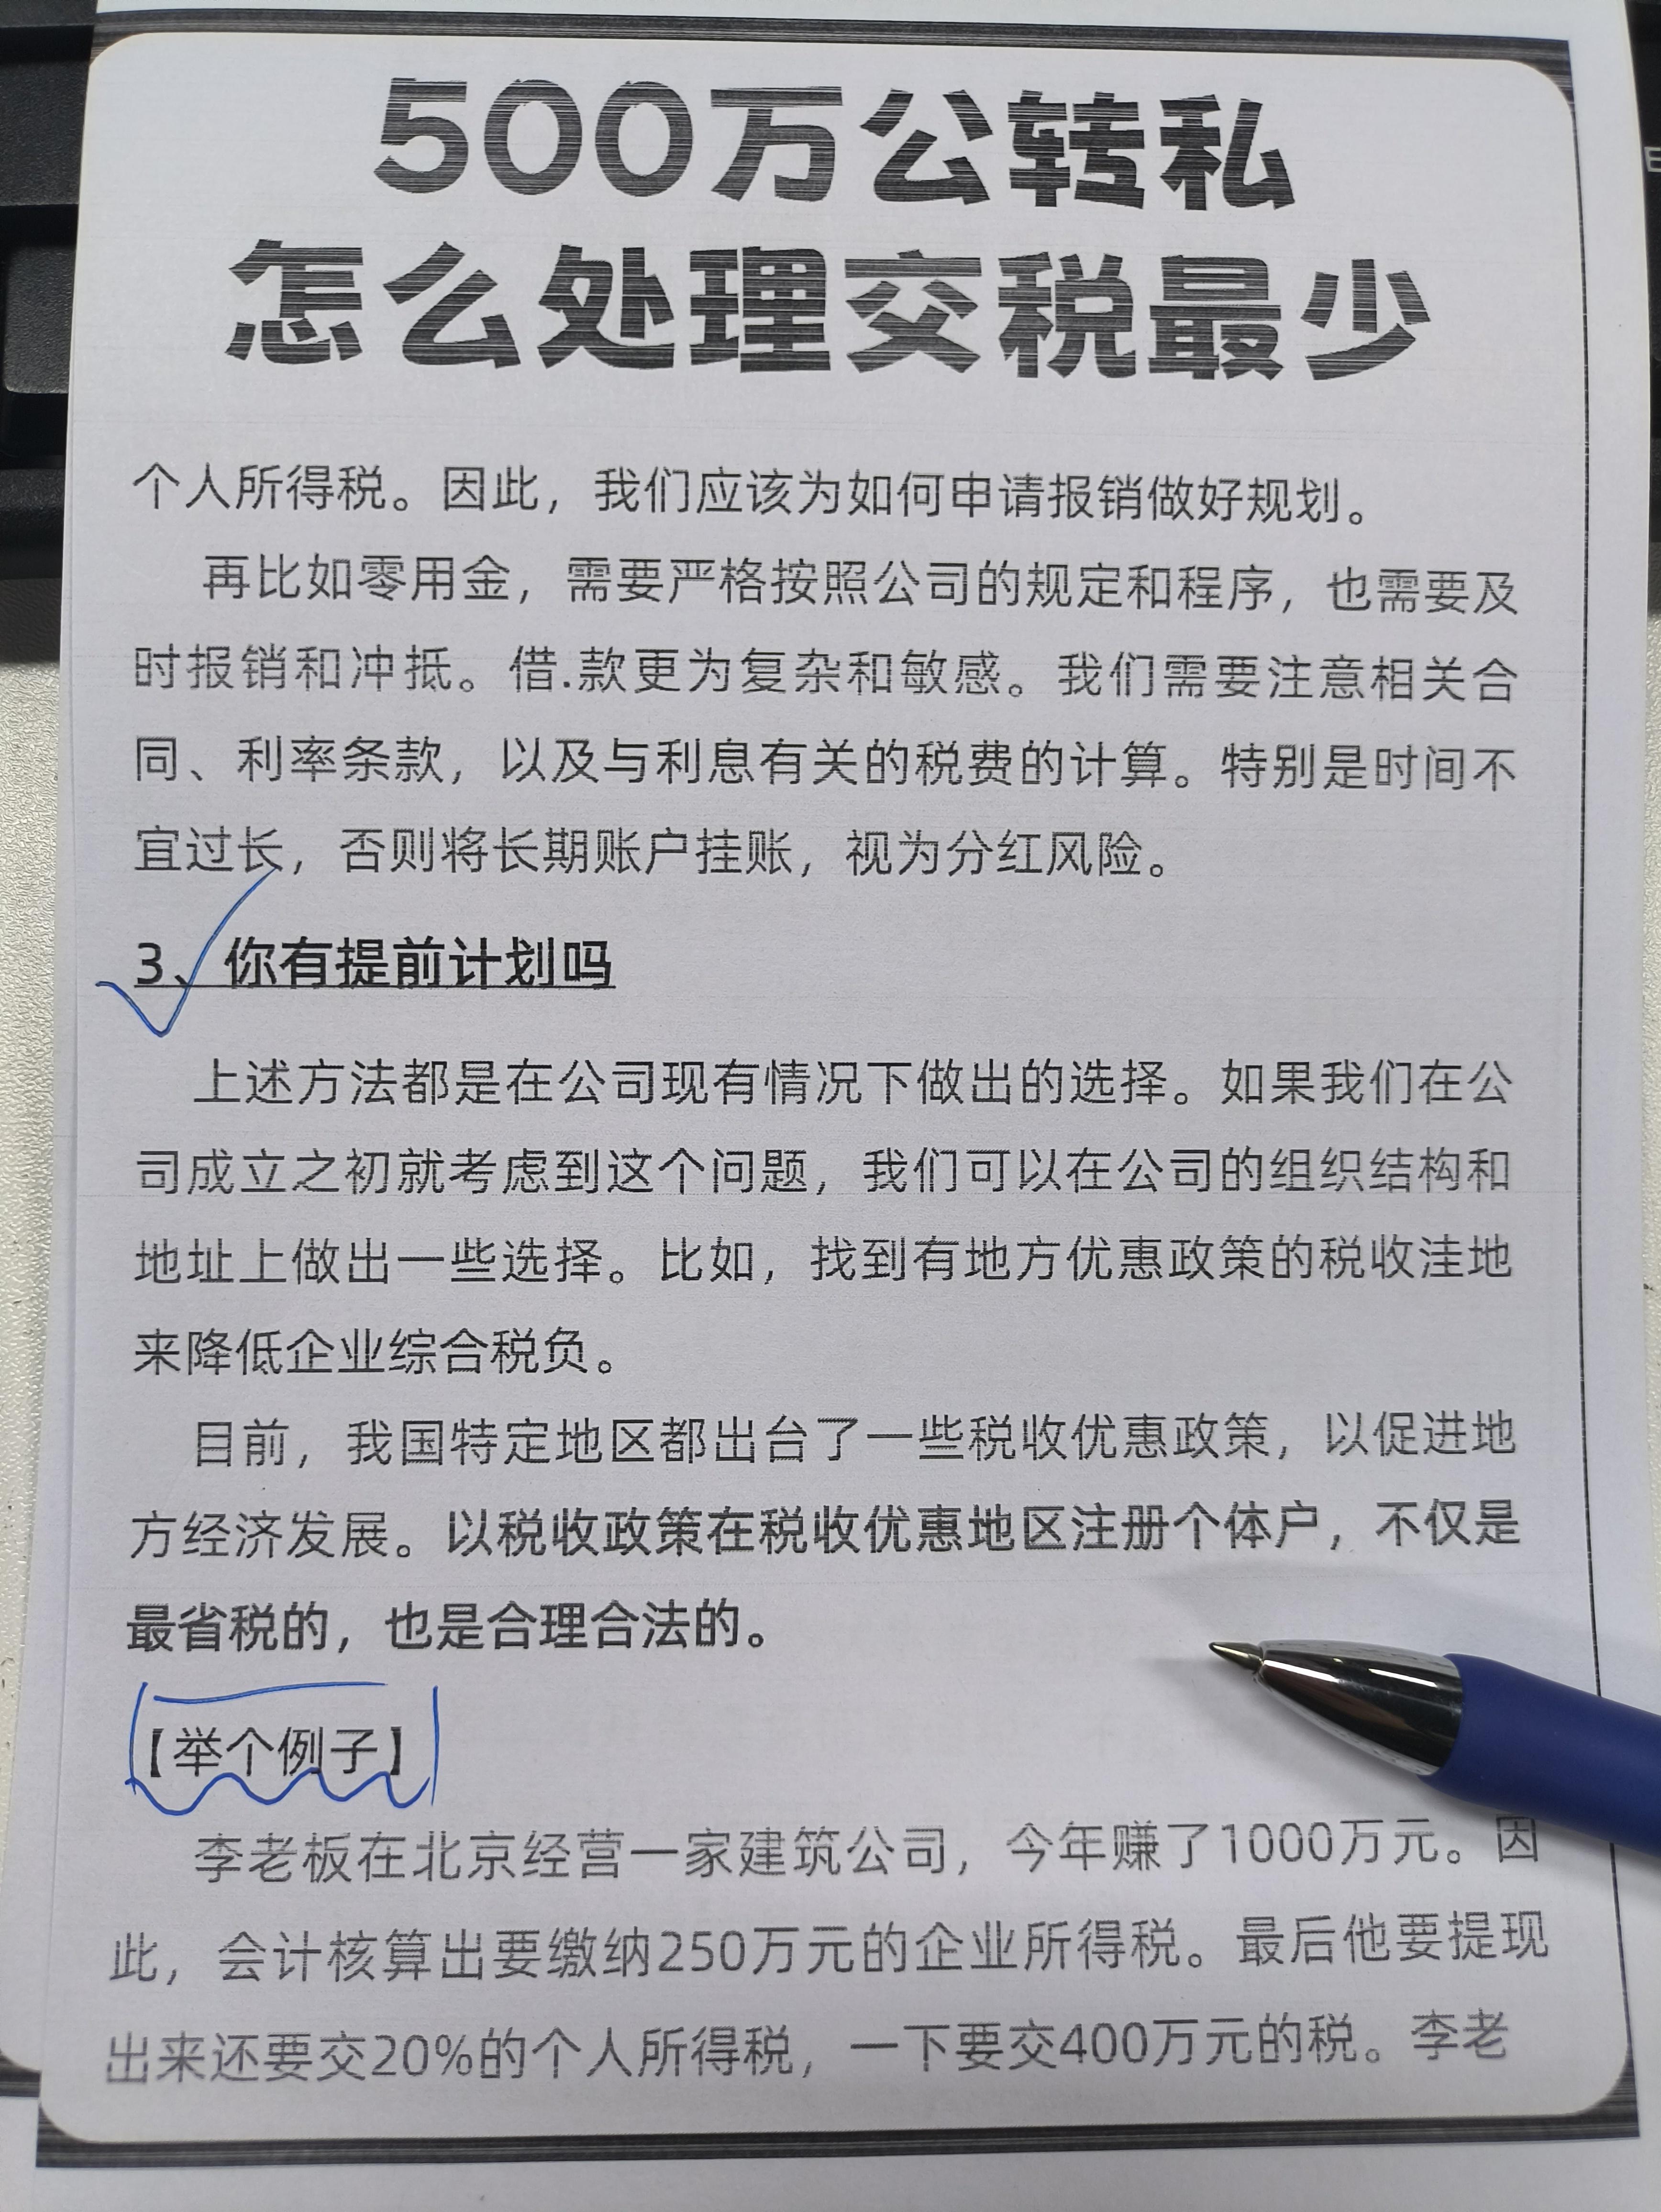 500万公转私
怎么处理交税最少
个人所得税。因此，我们应该为如何申请报销做好规划。
再比如零用金，需要严格按照公司的规定和程序，也需要及
时报销和冲抵。借.款更为复杂和敏感。我们需要注意相关合
同、利率条款，以及与利息有关的税费的计算。特别是时间不
宜过长，否则将长期账户挂账，视为分红风险。
3、你有提前计划吗
上述方法都是在公司现有情况下做出的选择。如果我们在公
司成立之初就考虑到这个问题，我们可以在公司的组织结构和
地址上做出一些选择。比如，找到有地方优惠政策的税收洼地
来降低企业综合税负。
目前，我国特定地区都出台了一些税收优惠政策，以促进地
方经济发展。以税收政策在税收优惠地区注册个体户，不仅是
最省税的，也是合理合法的。
【举个例子】
李老板在北京经营一家建筑公司，今年赚了1000万元。因
此，会计核算出要缴纳250万元的企业所得税。最后他要提现
出来还要交20%的个人所得税，一下要交400万元的税。李老